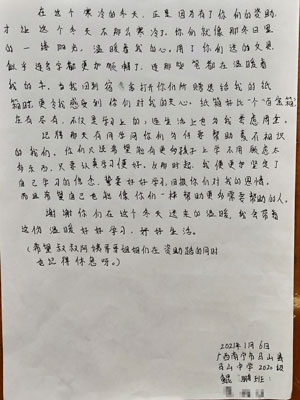 在这个寒冷的冬天,正是因为有了你们的资助,
才让这个冬天不那么寒冷了。你们就像那冬日里
的一缕阳光,温暖着我的心。用了你们送的文具,
似乎连写字都更加顺畅了,连那些笔都在温暖着
我的手。当我回到宿舍打开你们所赠送给我的纸
箱时,更令我感受到你们对我的关心。纸箱好比一个“百宝箱”
应有尽有,不仅是学习上的,连生活上也为我考虑周全。
记得那天有同学问你们为什么要帮助素不相识
的我们,你们只说希望能有更多孩子上学不用顾虑太
多东西,只要认真学习便好。从那时起,我便更加坚定了
自己学习的信念,誓要好好学习,回报你们对我的恩情。
而且希望自己也能像你们一样帮助更多需要帮助的人。
谢谢你们在这个冬天送来的温暖,我会带着
这份温暖好好学习,好好生活。
(希望叔叔阿姨哥哥姐姐们在资助路的同时
也记得休息呀。)
2021年1月6日
广西南宁市马山县
马山中学2020级
班